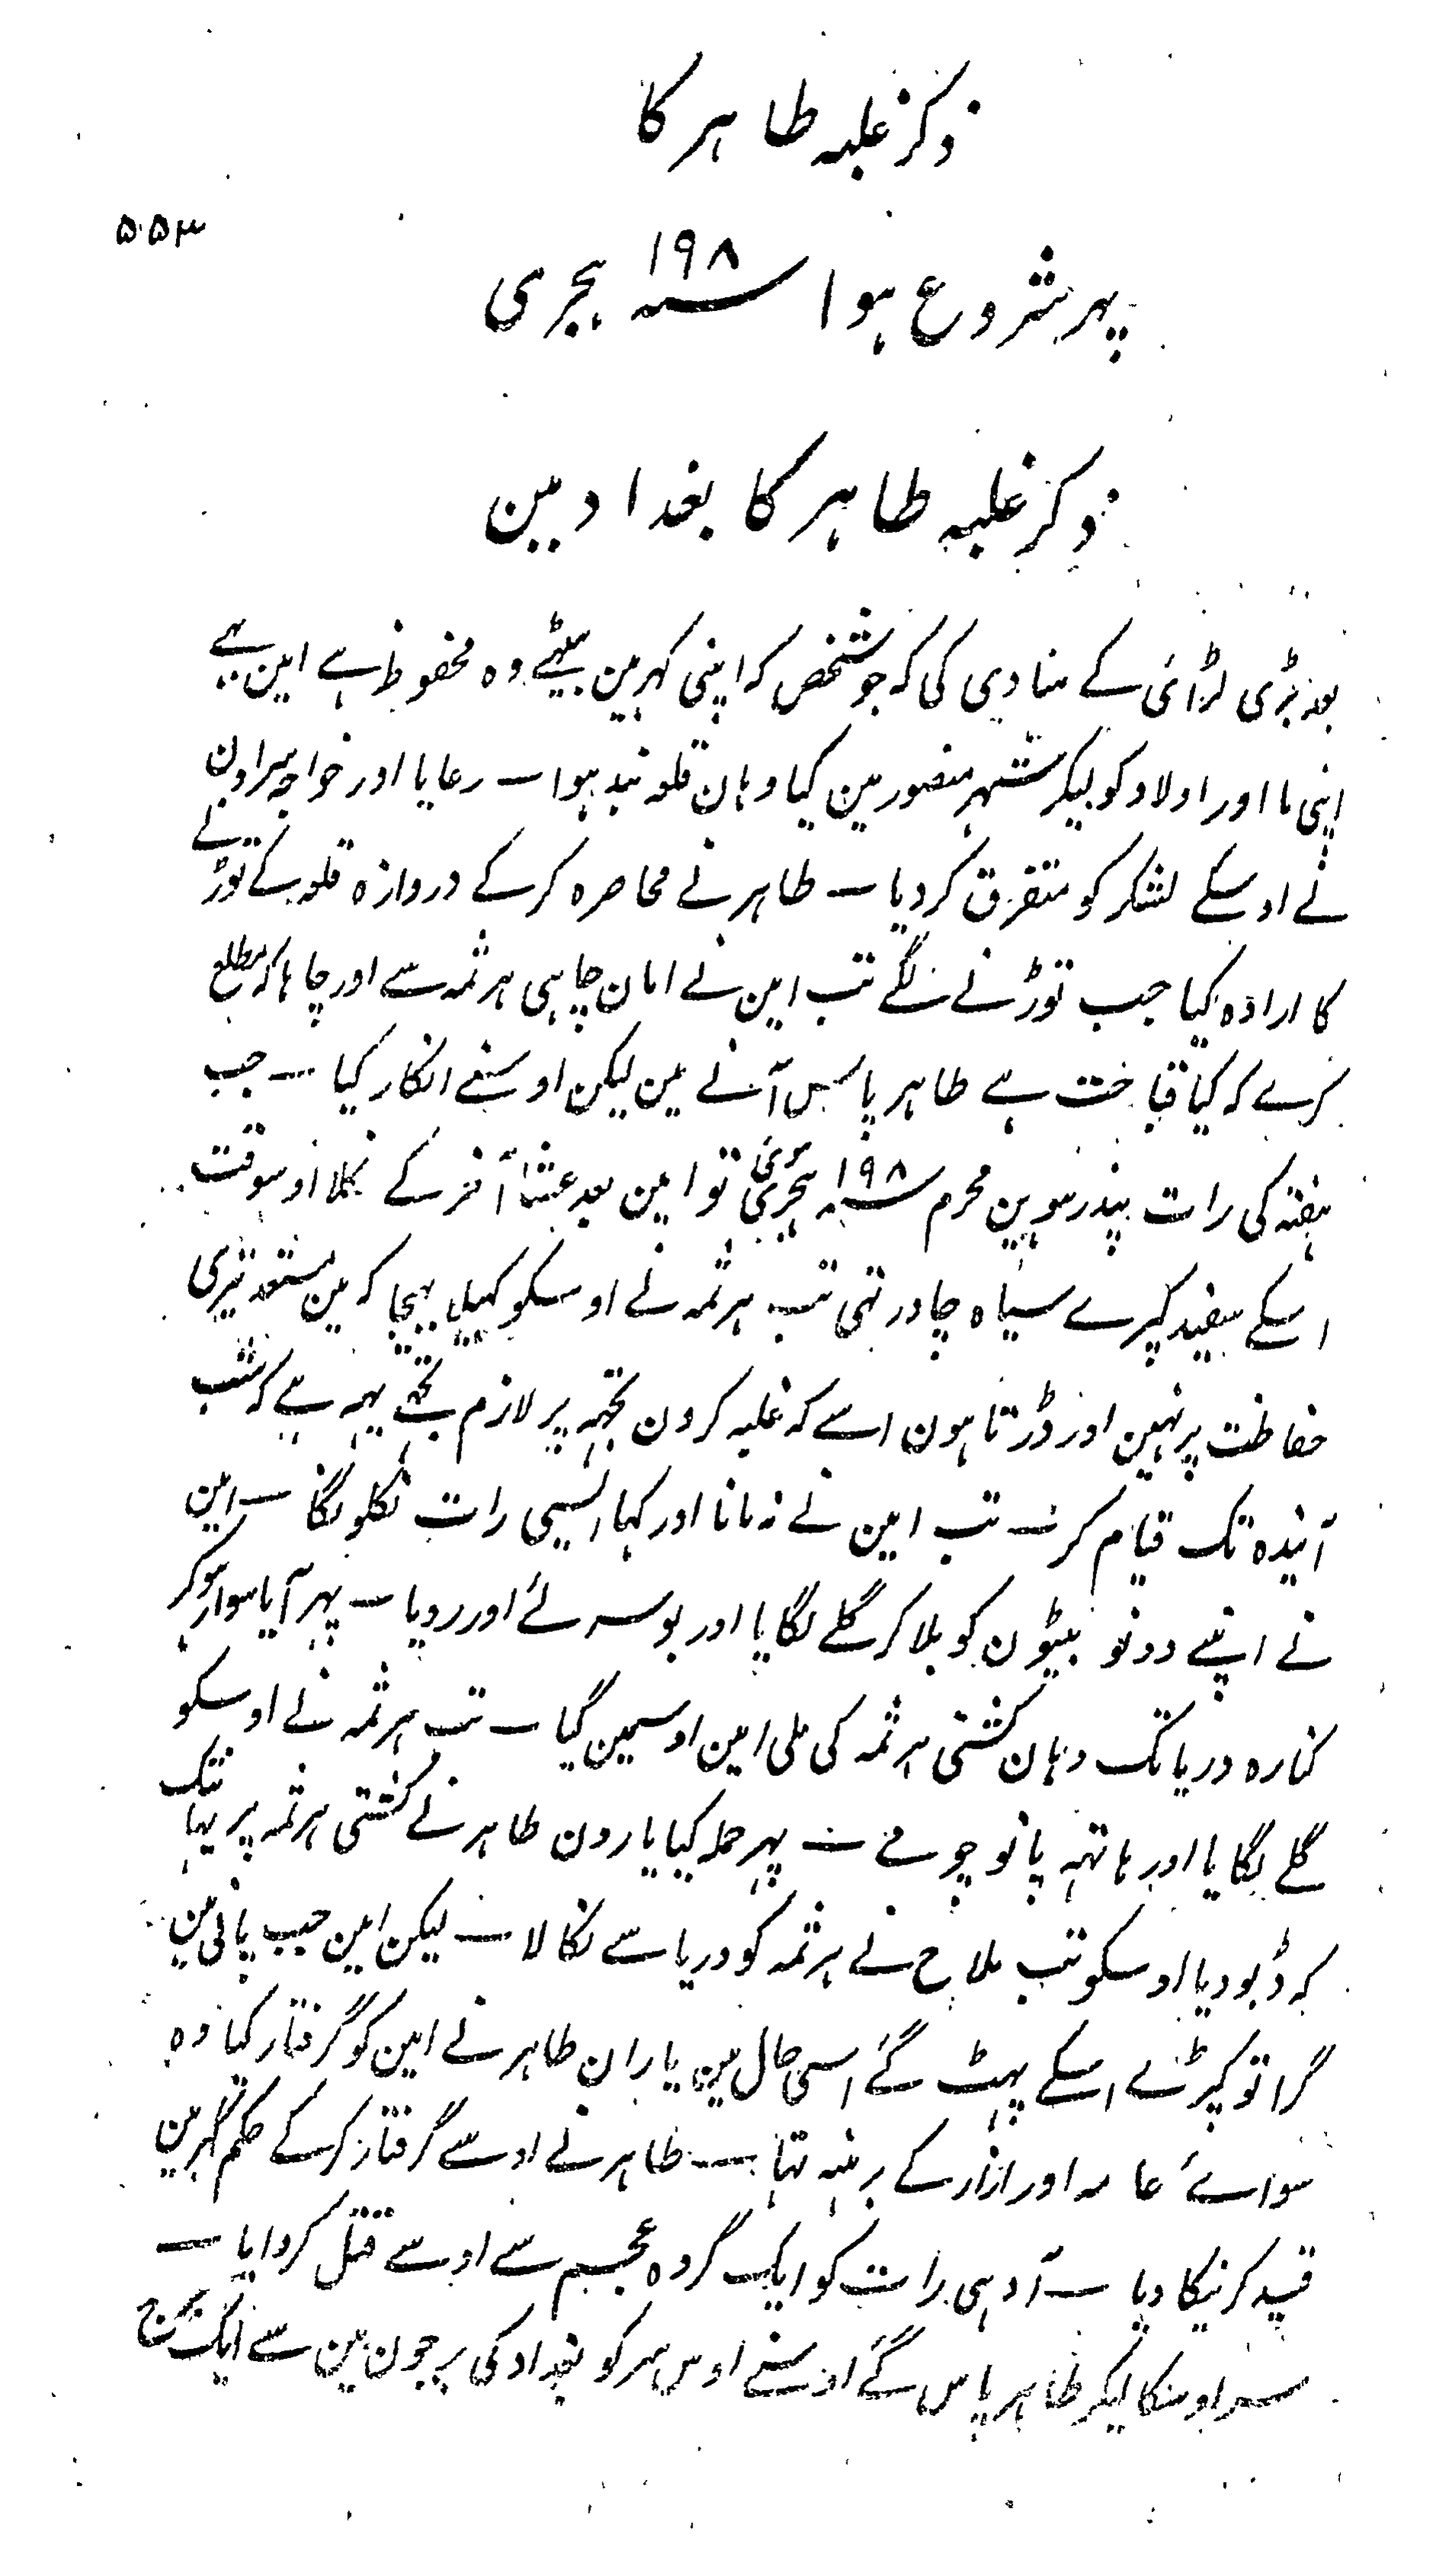 ذکر غلبہ طاہر کا
۵۵۳
پہر شروع ہوا ۱۹۸ سنہ ہجری
ذکر غلبہ طاہر کا بغداد مین
بعد بڑی لڑائی کے منادی کی کہ جو شخص کہ اپنی گہر مین بیٹھے وہ محفوظ ہے امین
اپنی ما اور اولاد کو لیکر شہر منصور مین گیا وہان قلعہ بند ہوا — رعایا اور خواجہ سراون
نے اوسکے لشکر کو متفرق کر دیا — طاہر نے محاصرہ کر کے دروازہ قلعہ کے توڑنے
کا ارادہ کیا جب توڑنے لگے تب امین نے امان چاہی ہرثمہ سے اور چاہا کہ مطلع
کرے کہ کیا قباحت ہے طاہر پاس آنے مین لیکن اوسنے انکار کیا — جب
ہفتہ کی رات پندرہوین محرم ۱۹۸ سنہ ہجری تو امین بعد عشا آخر کے نکلا اوسوقت
اسکے سفید کپرے سیاہ چادر تہی تب ہرثمہ نے اوسکو کہیلا بہیجا کہ مین مستعد تیری
حفاظت پر نہین اور ڈرتا ہون اسے کہ غلبہ کرون تجہہ پر لازم تجہے یہہ ہے کہ شب
آیندہ تک قیام کر — تب امین نے نہ مانا اور کہا اسیی رات نکلونگا — امین
نے اپنے دونو بیٹون کو بلا کر گلے لگایا اور بوسہ لئے اور رویا — پہر آیا سوار ہوکر
کنارہ دریا تک وہان کشتی ہرثمہ کی ملی امین اوسمین گیا — تب ہرثمہ نے اوسکو
گلے لگایا اور ہاتہہ پانو چومے — پہر حملہ کیا یارون طاہر نے کشتی ہرثمہ پر یہانتک
کہ ڈبو دیا اوسکو تب ملاح نے ہرثمہ کو دریا سے نکالا — لیکن امین جب پانی مین
گرا تو کپڑے اسکے پہٹ گئے اسی حال مین یاران طاہر نے امین کو گرفتار کیا وہ
سواے عمامہ اور ازار کے برہنہ تہا — طاہر نے اوسے گرفتار کر کے حکم گہر مین
قید کرنیکا دیا — آدہی رات کو ایک گروہ عجم سے اوسے قتل کروایا —
سر اوسکا لیکر طاہر پاس گئے اوسنے اوس سر کو بغداد کی برجون مین سے ایک برج